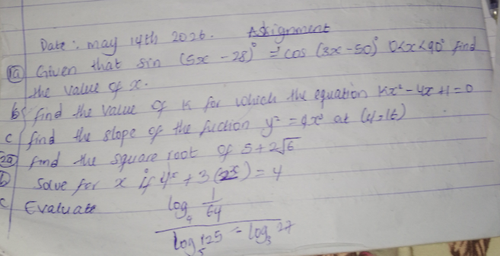 Date: may 14th 2026. Assignment
1a Given that sin (5x - 28)° = cos (3x - 50)° 0<x<90° find
the value of x.
b find the value of k for which the equation kx² - 4x + 1 = 0
c find the slope of the fuction y² = 4x³ at (4=16)
2a find the square root of 5 + 2√6
b Solve for x if 4ˣ + 3 ( ) = 4
c Evaluate log₄ 1/64
log₅ 125 - log₃ 27